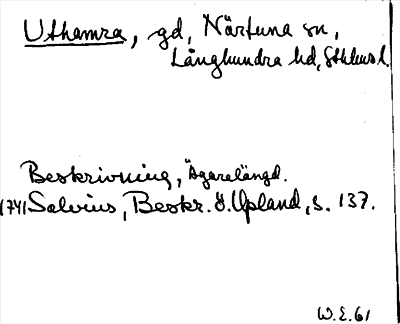 Uthamra, gd, Närtuna sn,
Långhundra hd, Sthlms l.
Beskrivning, Ägarelängd.
1741 Salvius, Beskr. ö. Upland, s. 137.
W.E. 61